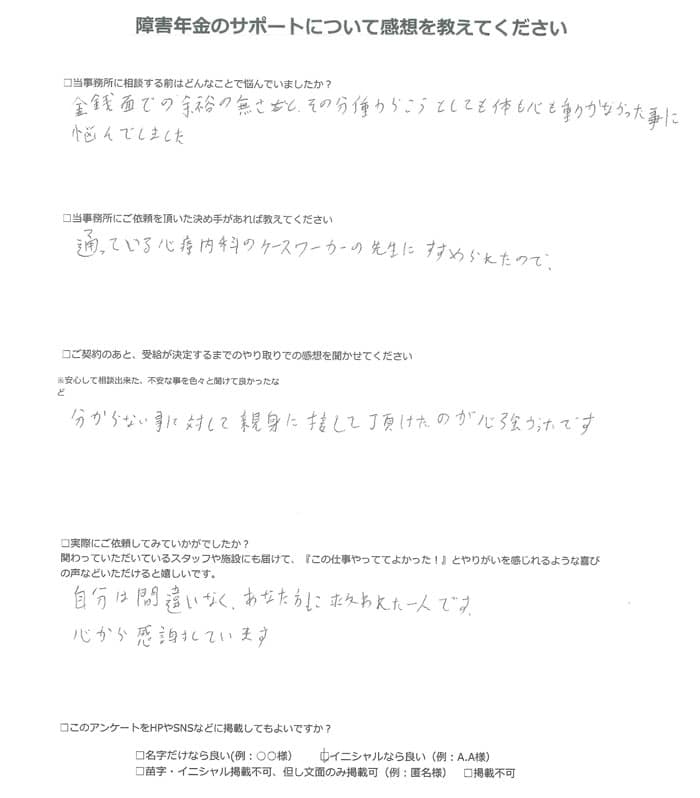 障害年金のサポートについて感想を教えてください
□当事務所に相談する前はどんなことで悩んでいましたか？
金銭面での余裕の無さと、その分働からこうとしても体も心も動かなかった事に
悩んでしました
□当事務所にご依頼を頂いた決め手があれば教えてください
通っている心療内科のケースワーカーの先生にすすめられたので、
□ご契約のあと、受給が決定するまでのやり取りでの感想を聞かせてください
※安心して相談出来た、不安な事を色々と聞けて良かったな
ど
分からない事に対して親身に接して頂けたのが心強かったです
□実際にご依頼してみていかがでしたか？
関わっていただいているスタッフや施設にも届けて、『この仕事やっててよかった！』とやりがいを感じれるような喜び
の声などいただけると嬉しいです。
自分は間違いなく、あなた方に救われた一人です。
心から感謝しています
□このアンケートをHPやSNSなどに掲載してもよいですか？
□名字だけなら良い(例：○○様） □イニシャルなら良い（例：A.A様）
□苗字・イニシャル掲載不可、但し文面のみ掲載可（例：匿名様） □掲載不可